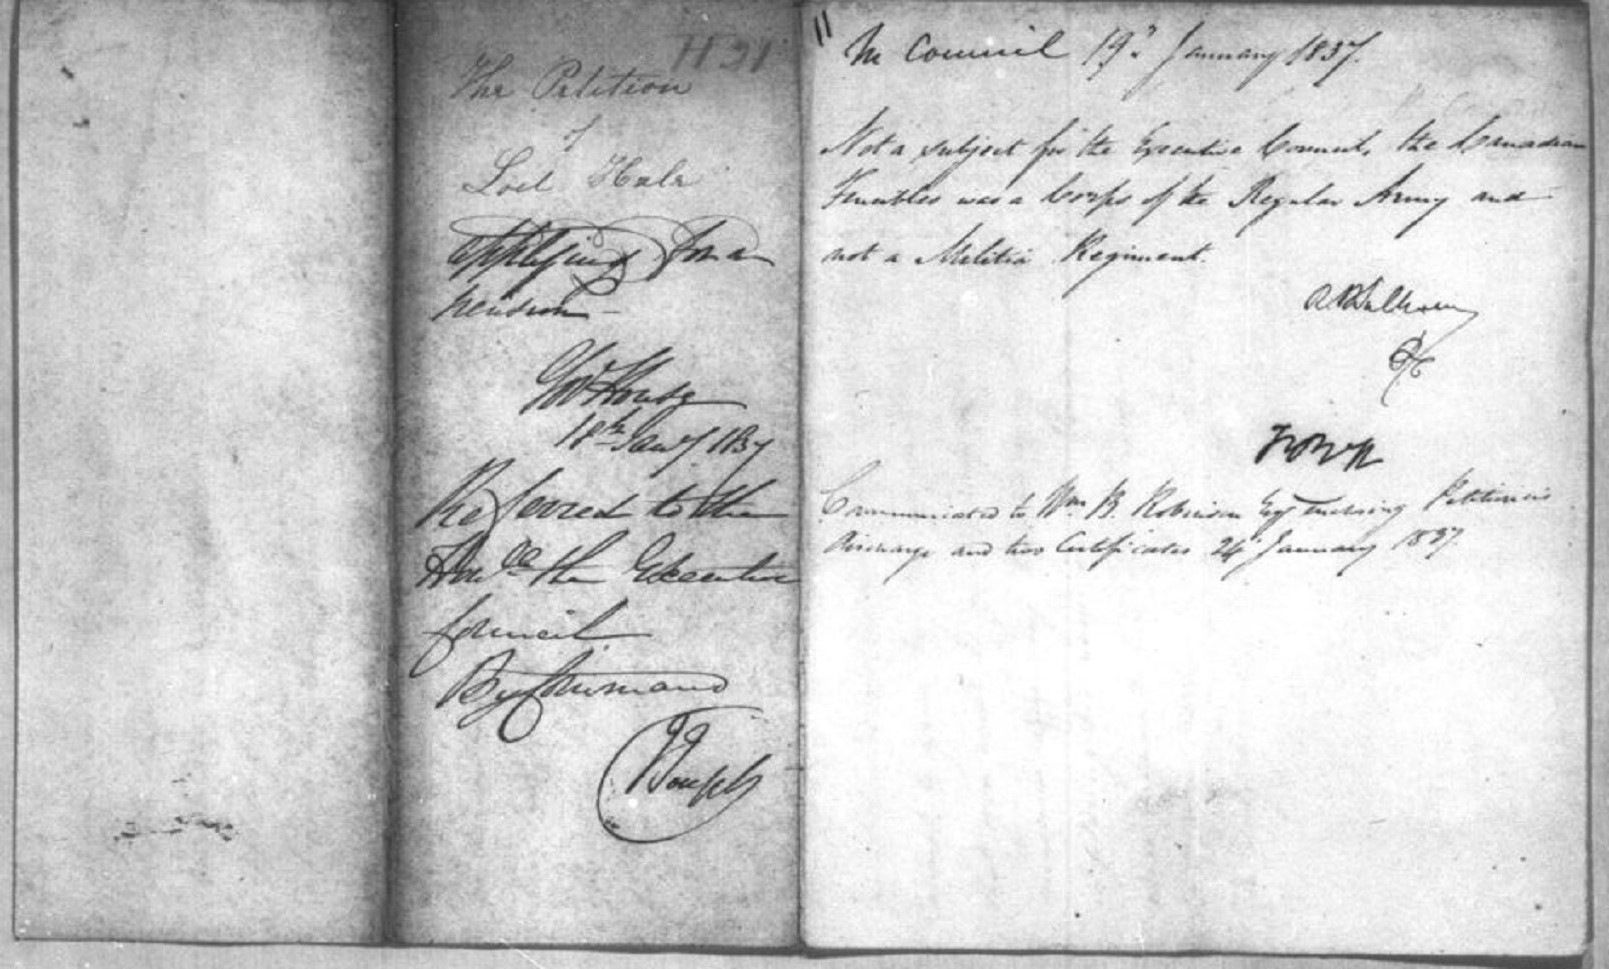 The Petition
of
Loel Hale
applying for a
pension
Govt House
18th Jany 1837
Referred to the
Honble the Executive
Council
By Command
J Joseph
11
In Council 19th January 1837.
Not a subject for the Executive Council, the Canadian
Fencibles was a Corps of the Regular Army and
not a Militia Regiment.
Communicated to Wm B. Robinson Esq enclosing Petitioners
discharge and two Certificates 24 January 1837.